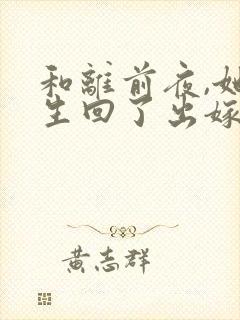 和離前夜,她
生回了出嫁
黃志群